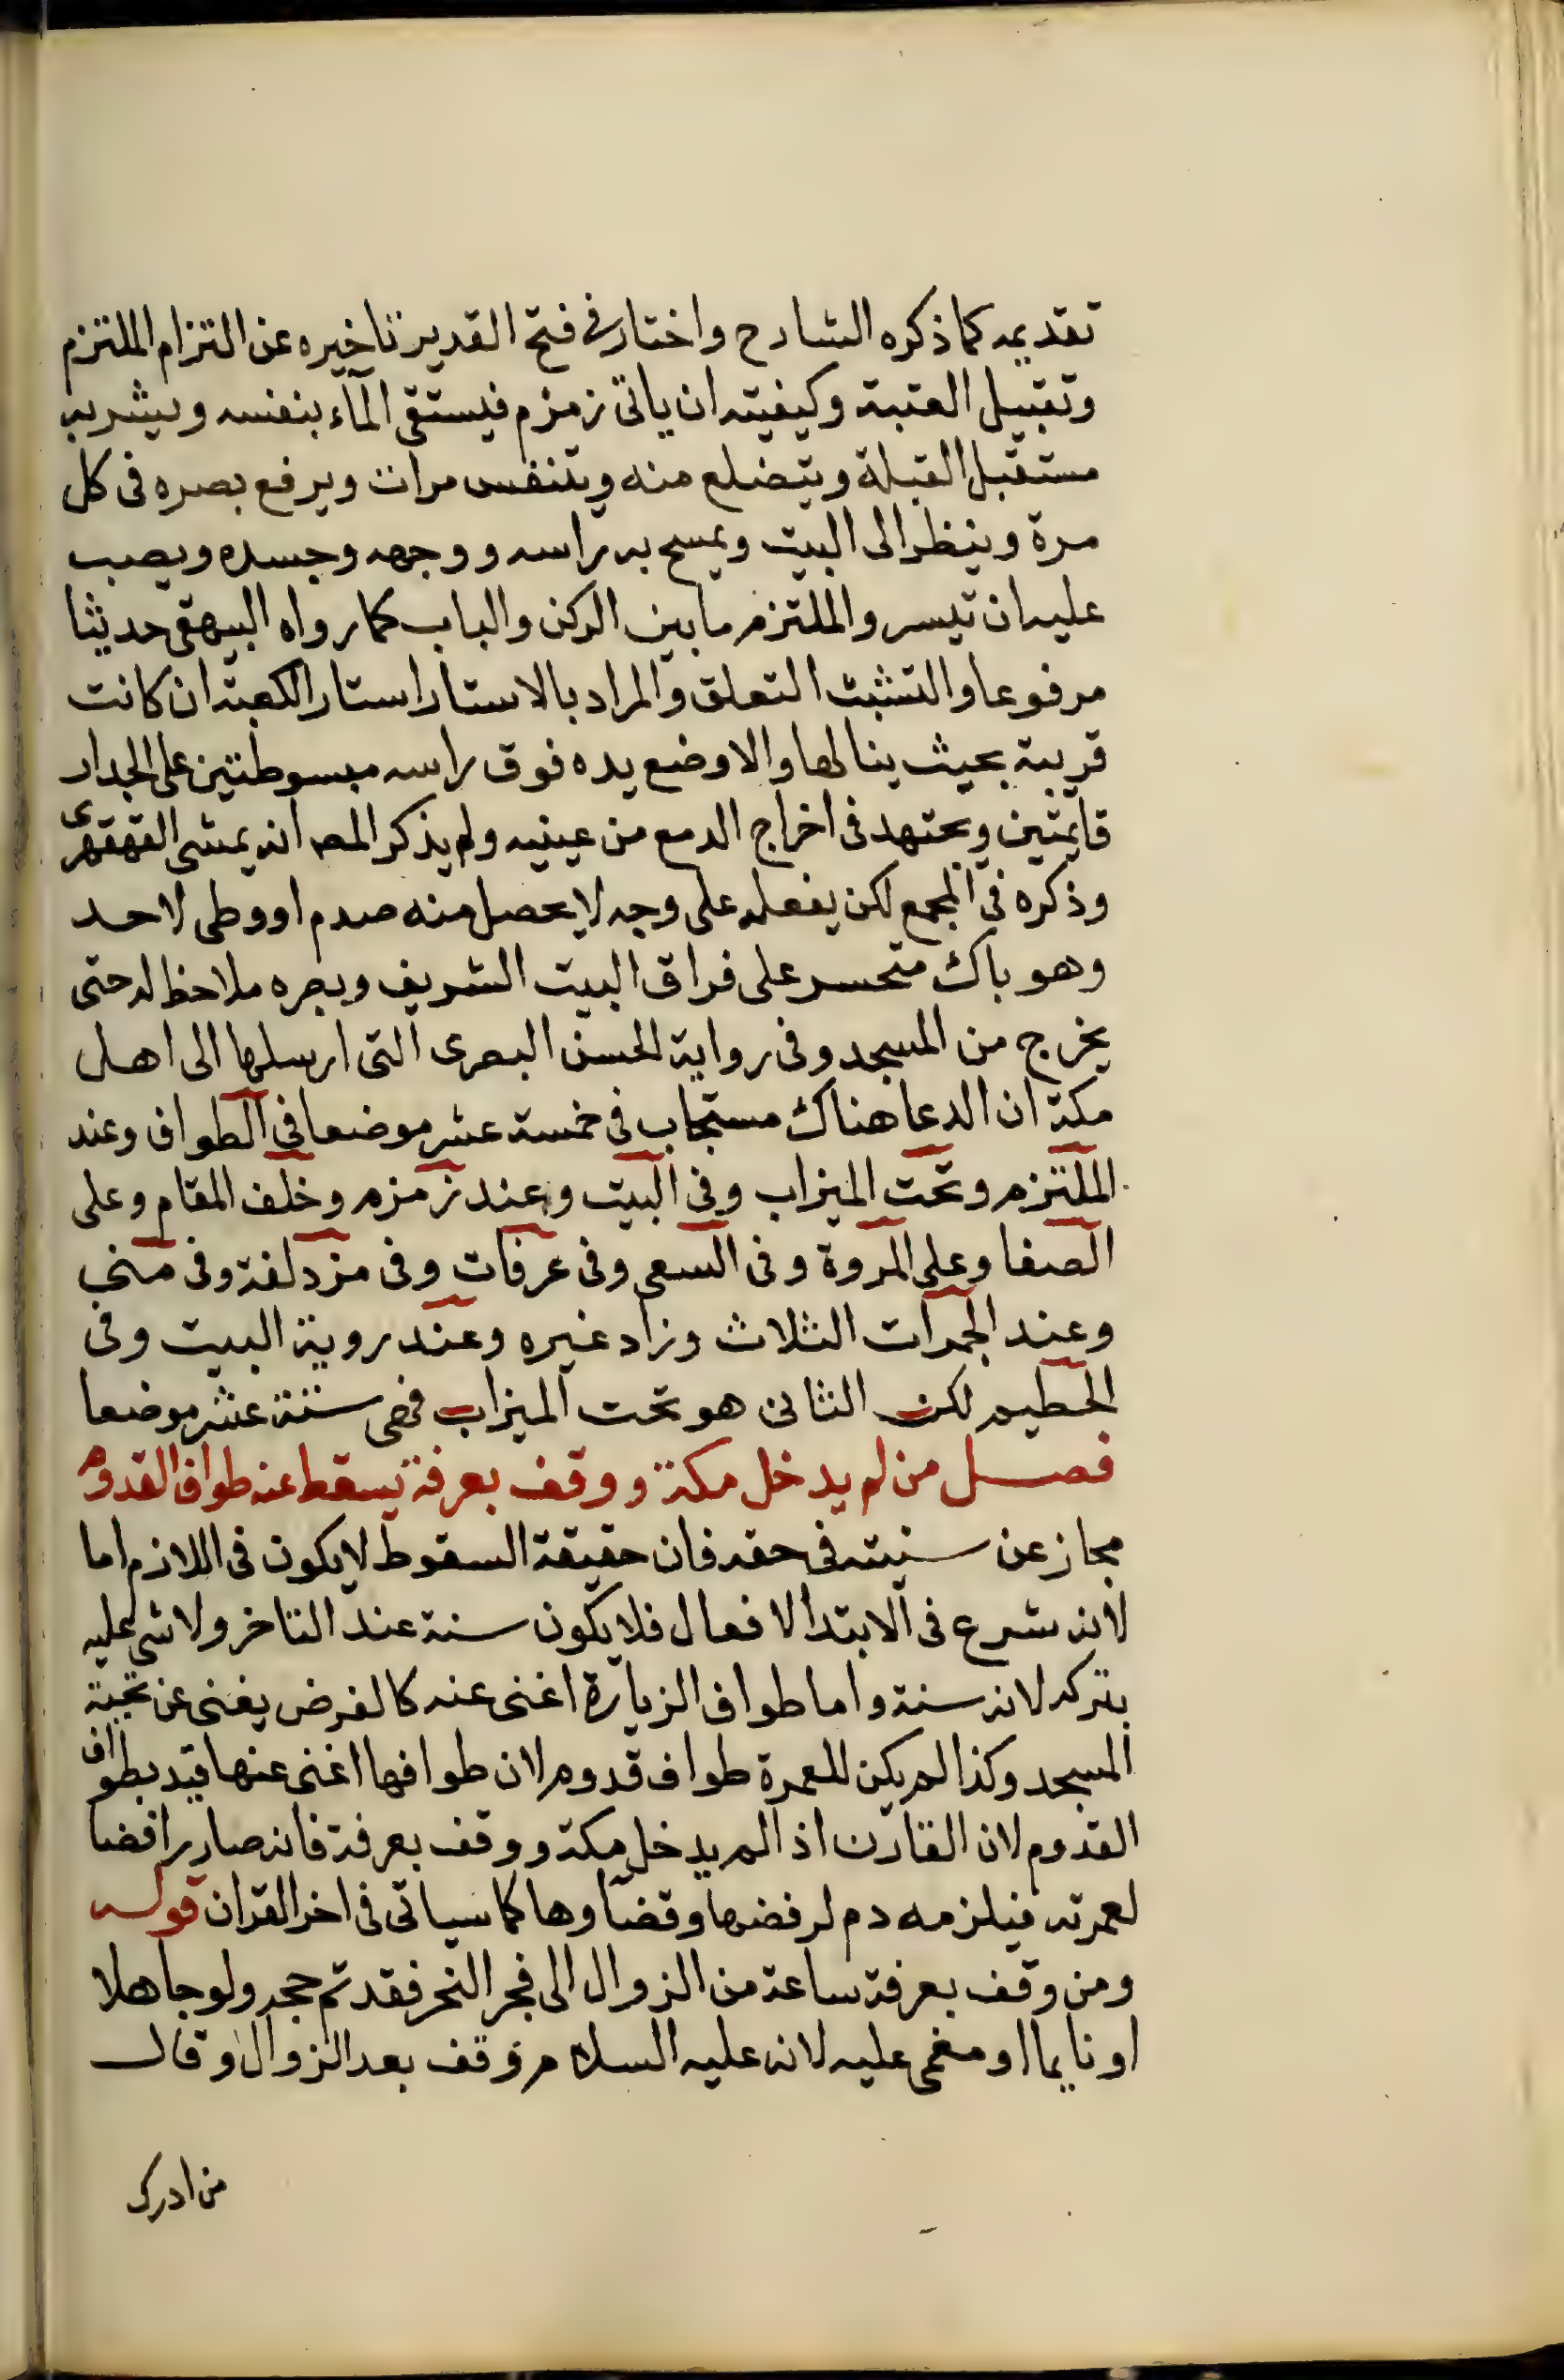 تقديمه كما ذكره الشارح واختار في فتح القدير تاخيره عن التزام الملتزم
وتقبيل العتبة وكيفيته ان ياتى زمزم فيستقى المآء بنفسه ويشربه
مستقبل القبلة ويتضلع منه ويتنفس مرات ويرفع بصره فى كل
مرة وينظر الى البيت ويمسح به راسه ووجهه وجسده ويصب
عليه ان تيسر والملتزم ما بين الركن والباب كما رواه البيهقى حديثا
مرفوعا والتشبث التعلق والمراد بالاستار استار الكعبة ان كانت
قريبة بحيث ينالها والا وضع يده فوق راسه مبسوطتين على الجدار
قايمتين ويجتهد فى اخراج الدمع من عينيه ولم يذكر المص انه يمشى القهقرى
وذكره في المجمع لكن يفعله على وجه لا يحصل منه صدم او وطى لاحد
وهو باك متحسر على فراق البيت الشريف وبصره ملاحظ له حتى
يخرج من المسجد وفى رواية الحسن البصرى التى ارسلها الى اهل
مكة ان الدعا هناك مستجاب فى خمسة عشر موضعا في الطواف وعند
الملتزم وتحت الميزاب وفى البيت وعند زمزم وخلف المقام وعلى
الصفا وعلى المروة وفى السعى وفى عرفات وفى مزدلفة وفى منى
وعند الجمرات الثلاث وزاد غيره وعند روية البيت وفى
الحطيم لكن الثانى هو تحت الميزاب فهى ستة عشر موضعا
فصل من لم يدخل مكة ووقف بعرفة يسقط عنه طواف القدوم
مجاز عن سنيته فى حقه فان حقيقة السقوط لا يكون فى اللازم اما
لانه شرع فى الابتدا الافعال فلا يكون سنة عند التاخر ولا شى عليه
بتركه لانه سنة واما طواف الزيارة اغنى عنه كالفرض يغنى عن تحية
المسجد وكذا لم يكن للعمرة طواف قدوم لان طوافها اغنى عنها قيد بطواف
القدوم لان القارن اذا لم يدخل مكة ووقف بعرفة فانه صار رافضا
لعمرته فيلزمه دم لرفضها وقضاوها كما سياتى فى اخر القران قوله
ومن وقف بعرفة ساعة من الزوال الى فجر النحر فقد تم حجه ولو جاهلا
او نايما او مغمى عليه لانه عليه السلام وقف بعد الزوال وقال
من ادرك